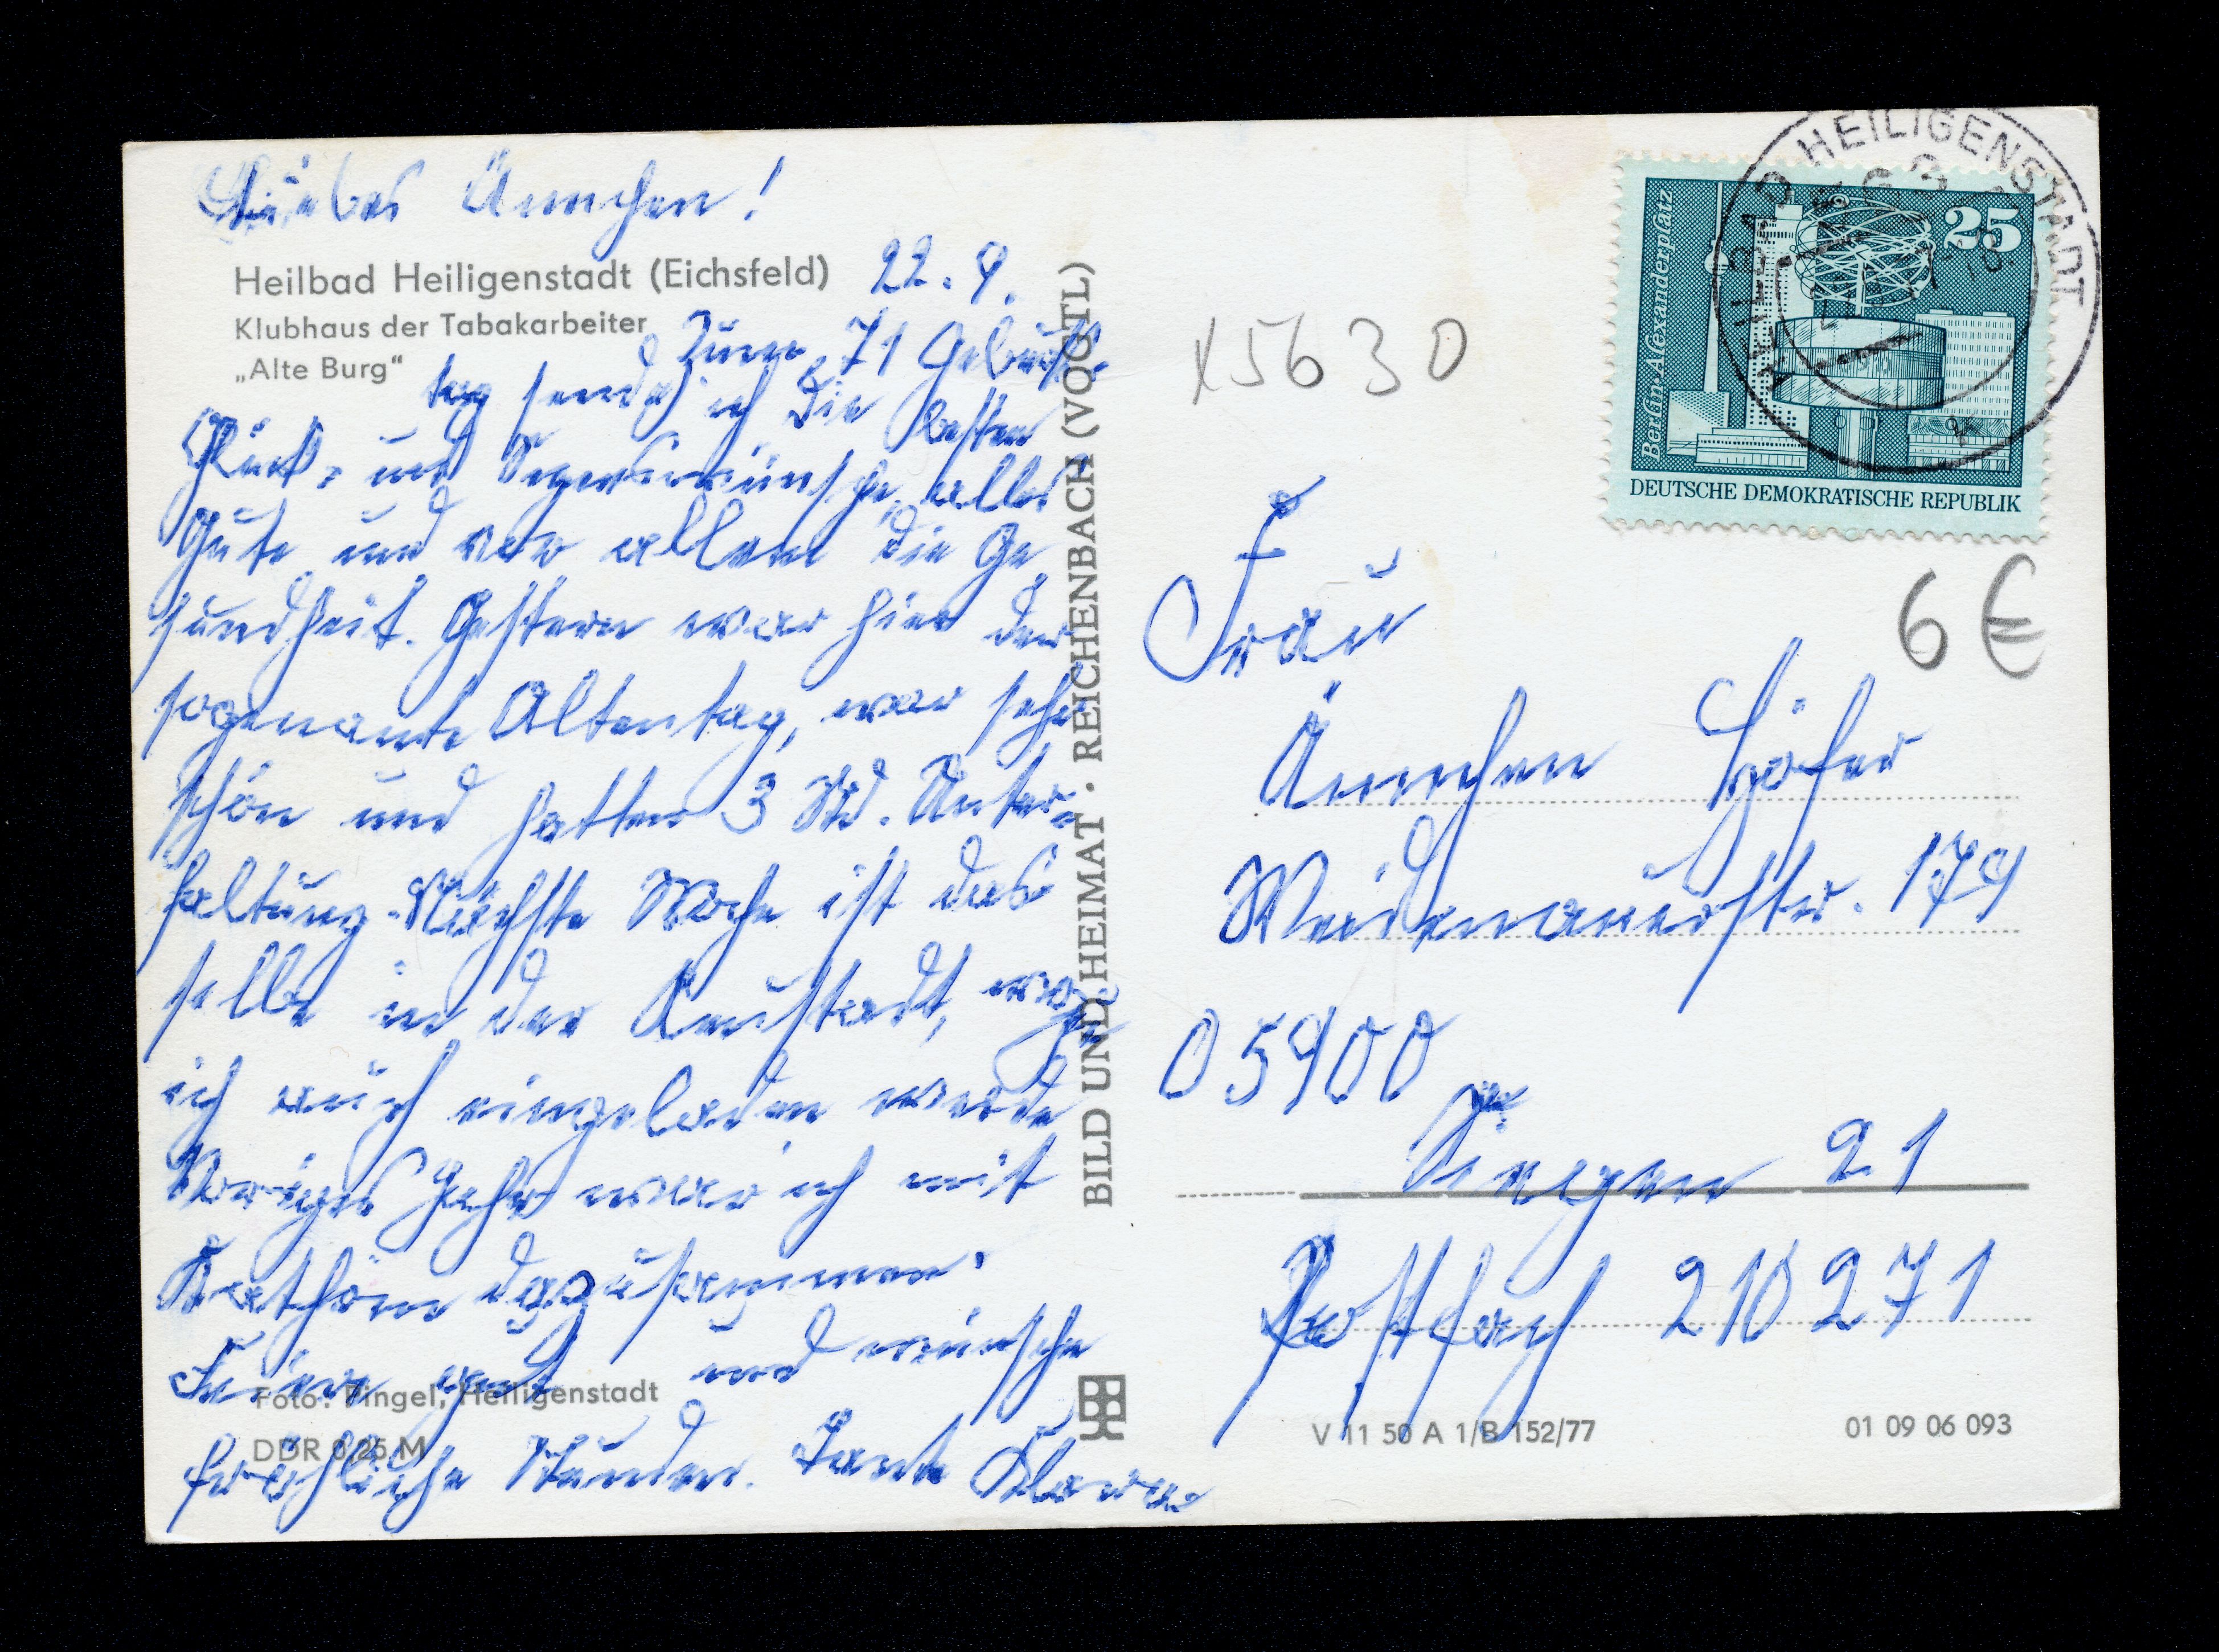 Liebes Ännchen!
Heilbad Heiligenstadt (Eichsfeld)
22. 9.
Klubhaus der Tabakarbeiter
„Alte Burg“
Zum 71 Geburts-
tag sende ich die besten
Glück- und Segenswünsche, alles
Gute und vor allem die Ge
sundheit. Gestern war hier der
sogenante Altentag, war sehr
schön und hatten 3 Std. Unter-
haltung. Nächste Woche ist das
selbe in der Neustadt, wozu
ich auch eingeladen werde
Voriges Jahr war ich mit
dazusammen.
Feiere gut und wünsche
Foto: Pingel, Heiligenstadt
DDR 0,25 M
fröhliche Stunden. Tante Klara
BILD UND HEIMAT · REICHENBACH (VOGTL)
x5630
HEILBAD HEILIGENSTADT
Berlin·Alexanderplatz
25
DEUTSCHE DEMOKRATISCHE REPUBLIK
6 €
Frau
Ännchen Höfer
Weidenauerstr. 179
05900
Siegen 21
Postfach 210271
V 11 50 A 1/B 152/77
01 09 06 093